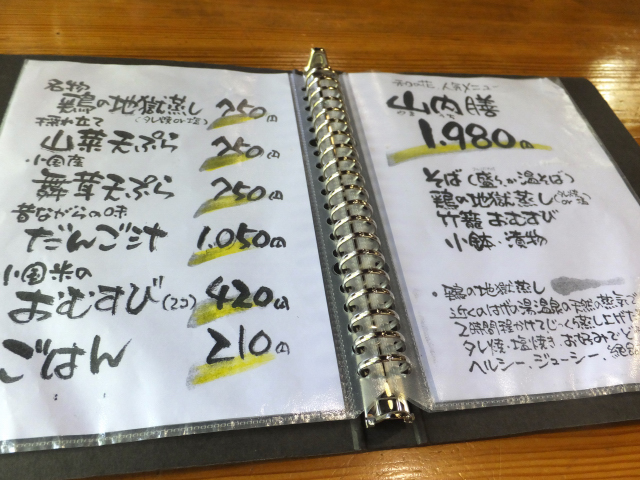 名物
鶏の地獄蒸し 250円
(タレ焼or塩)
採れ立て
山菜天ぷら 250円
小国産
舞茸天ぷら 250円
昔ながらの味
だんご汁 1.050円
小国米の
おむすび(2コ) 420円
ごはん 210円
人気メニュー
山内膳
1.980円
そば(盛りか温そば)
鶏の地獄蒸し
竹籠おむすび
小鉢・漬物
・鶏の地獄蒸し
近くのはげ湯温泉の天然の蒸気で
2時間強かけてじっくり蒸し上げ
タレ焼・塩焼き お好みで
ヘルシー、ジューシー、絶